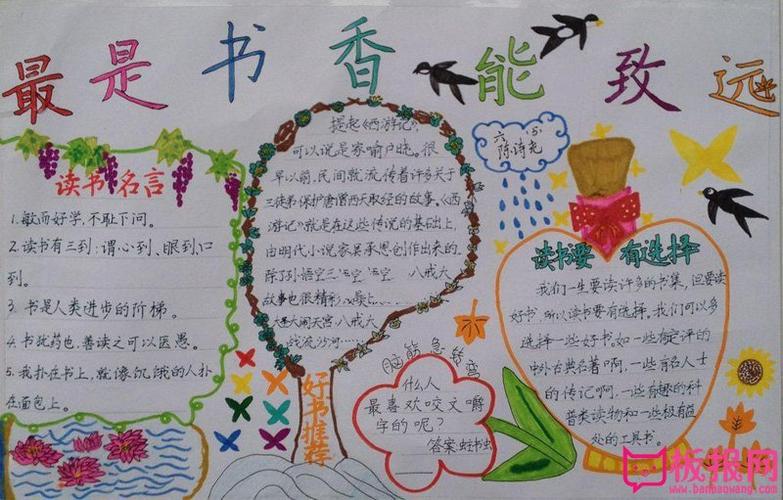 最是书香能致远
读书名言
1.敏而好学,不耻下问。
2.读书有三到:谓心到、眼到、口
到。
3.书是人类进步的阶梯。
4.书犹药也,善读之可以医愚。
5.我扑在书上,就像饥饿的人扑
在面包上。
提起《西游记》,
可以说是家喻户晓。很
早以前,民间就流传着许多关于
三徒弟保护唐僧西天取经的故事。《西
游记》就是在这些传说的基础上,
由明代小说家吴承恩创作出来的。
八戒大
故事也很精彩
大闹天宫 八戒大
战流沙河……
好书推荐
六(5)
陈诗
脑筋急转弯
什么人
最喜欢咬文嚼
字的呢?
答案:蛀书虫
读书要有选择
我们一生要读许多的书集,但要读
好书,所以读书要有选择。我们可以多
选择一些好书。如一些有定评的
中外古典名著啊,一些有名人士
的传记啊,一些有趣的科
普类读物和一些极有益
处的工具书。
板报网
www.banbaowang.com